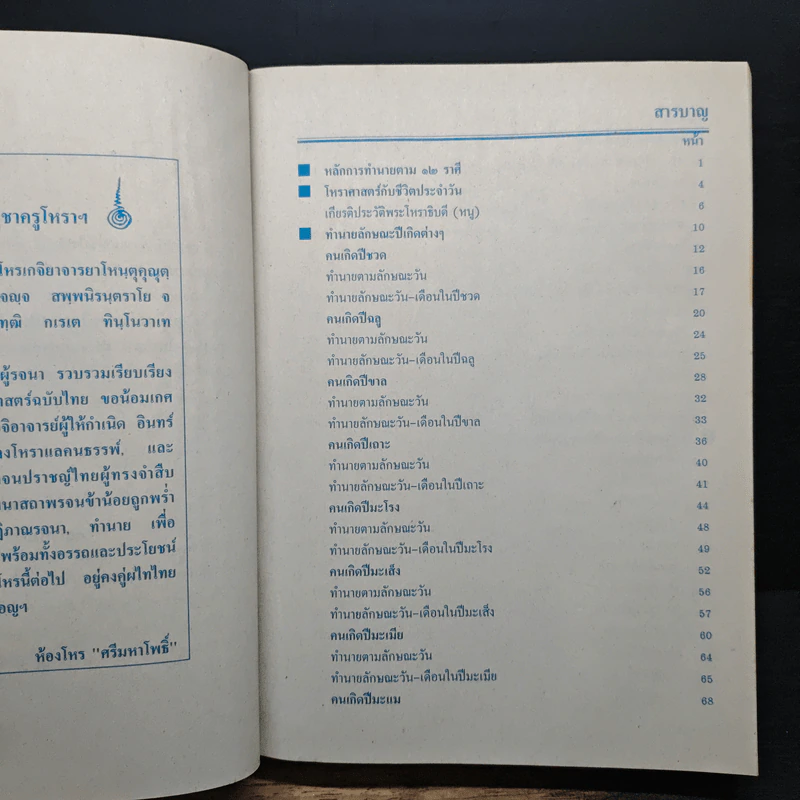 ชาครูโหราฯ
โหรเกจิยาจารยาโหนฺตุคุณุตฺ
จญฺจ สพฺพนิรนฺตราโย จ
ทฺฒิ กเรเต ทินฺโนวาเท
ผู้รจนา รวบรวมเรียบเรียง
าสตร์ฉบับไทย ขอน้อมเกศ
จิอาจารย์ผู้ให้กำเนิด อินทร์
งโหราแลคนธรรพ์, และ
จนปราชญ์ไทยผู้ทรงจำสืบ
นาสถาพรจนข้าน้อยถูกพร่ำ
ฏิภาณรจนา, ทำนาย เพื่อ
พร้อมทั้งอรรถและประโยชน์
โหรนี้ต่อไป อยู่คงคู่ผไทไทย
อญฯ
ห้องโหร "ศรีมหาโพธิ์"
สารบาญ
หน้า
หลักการทำนายตาม ๑๒ ราศี 1
โหราศาสตร์กับชีวิตประจำวัน 4
เกียรติประวัติพระโหราธิบดี (หนู) 6
ทำนายลักษณะปีเกิดต่างๆ 10
คนเกิดปีชวด 12
ทำนายตามลักษณะวัน 16
ทำนายลักษณะวัน-เดือนในปีชวด 17
คนเกิดปีฉลู 20
ทำนายตามลักษณะวัน 24
ทำนายลักษณะวัน-เดือนในปีฉลู 25
คนเกิดปีขาล 28
ทำนายตามลักษณะวัน 32
ทำนายลักษณะวัน-เดือนในปีขาล 33
คนเกิดปีเถาะ 36
ทำนายตามลักษณะวัน 40
ทำนายลักษณะวัน-เดือนในปีเถาะ 41
คนเกิดปีมะโรง 44
ทำนายตามลักษณะวัน 48
ทำนายลักษณะวัน-เดือนในปีมะโรง 49
คนเกิดปีมะเส็ง 52
ทำนายตามลักษณะวัน 56
ทำนายลักษณะวัน-เดือนในปีมะเส็ง 57
คนเกิดปีมะเมีย 60
ทำนายตามลักษณะวัน 64
ทำนายลักษณะวัน-เดือนในปีมะเมีย 65
คนเกิดปีมะแม 68